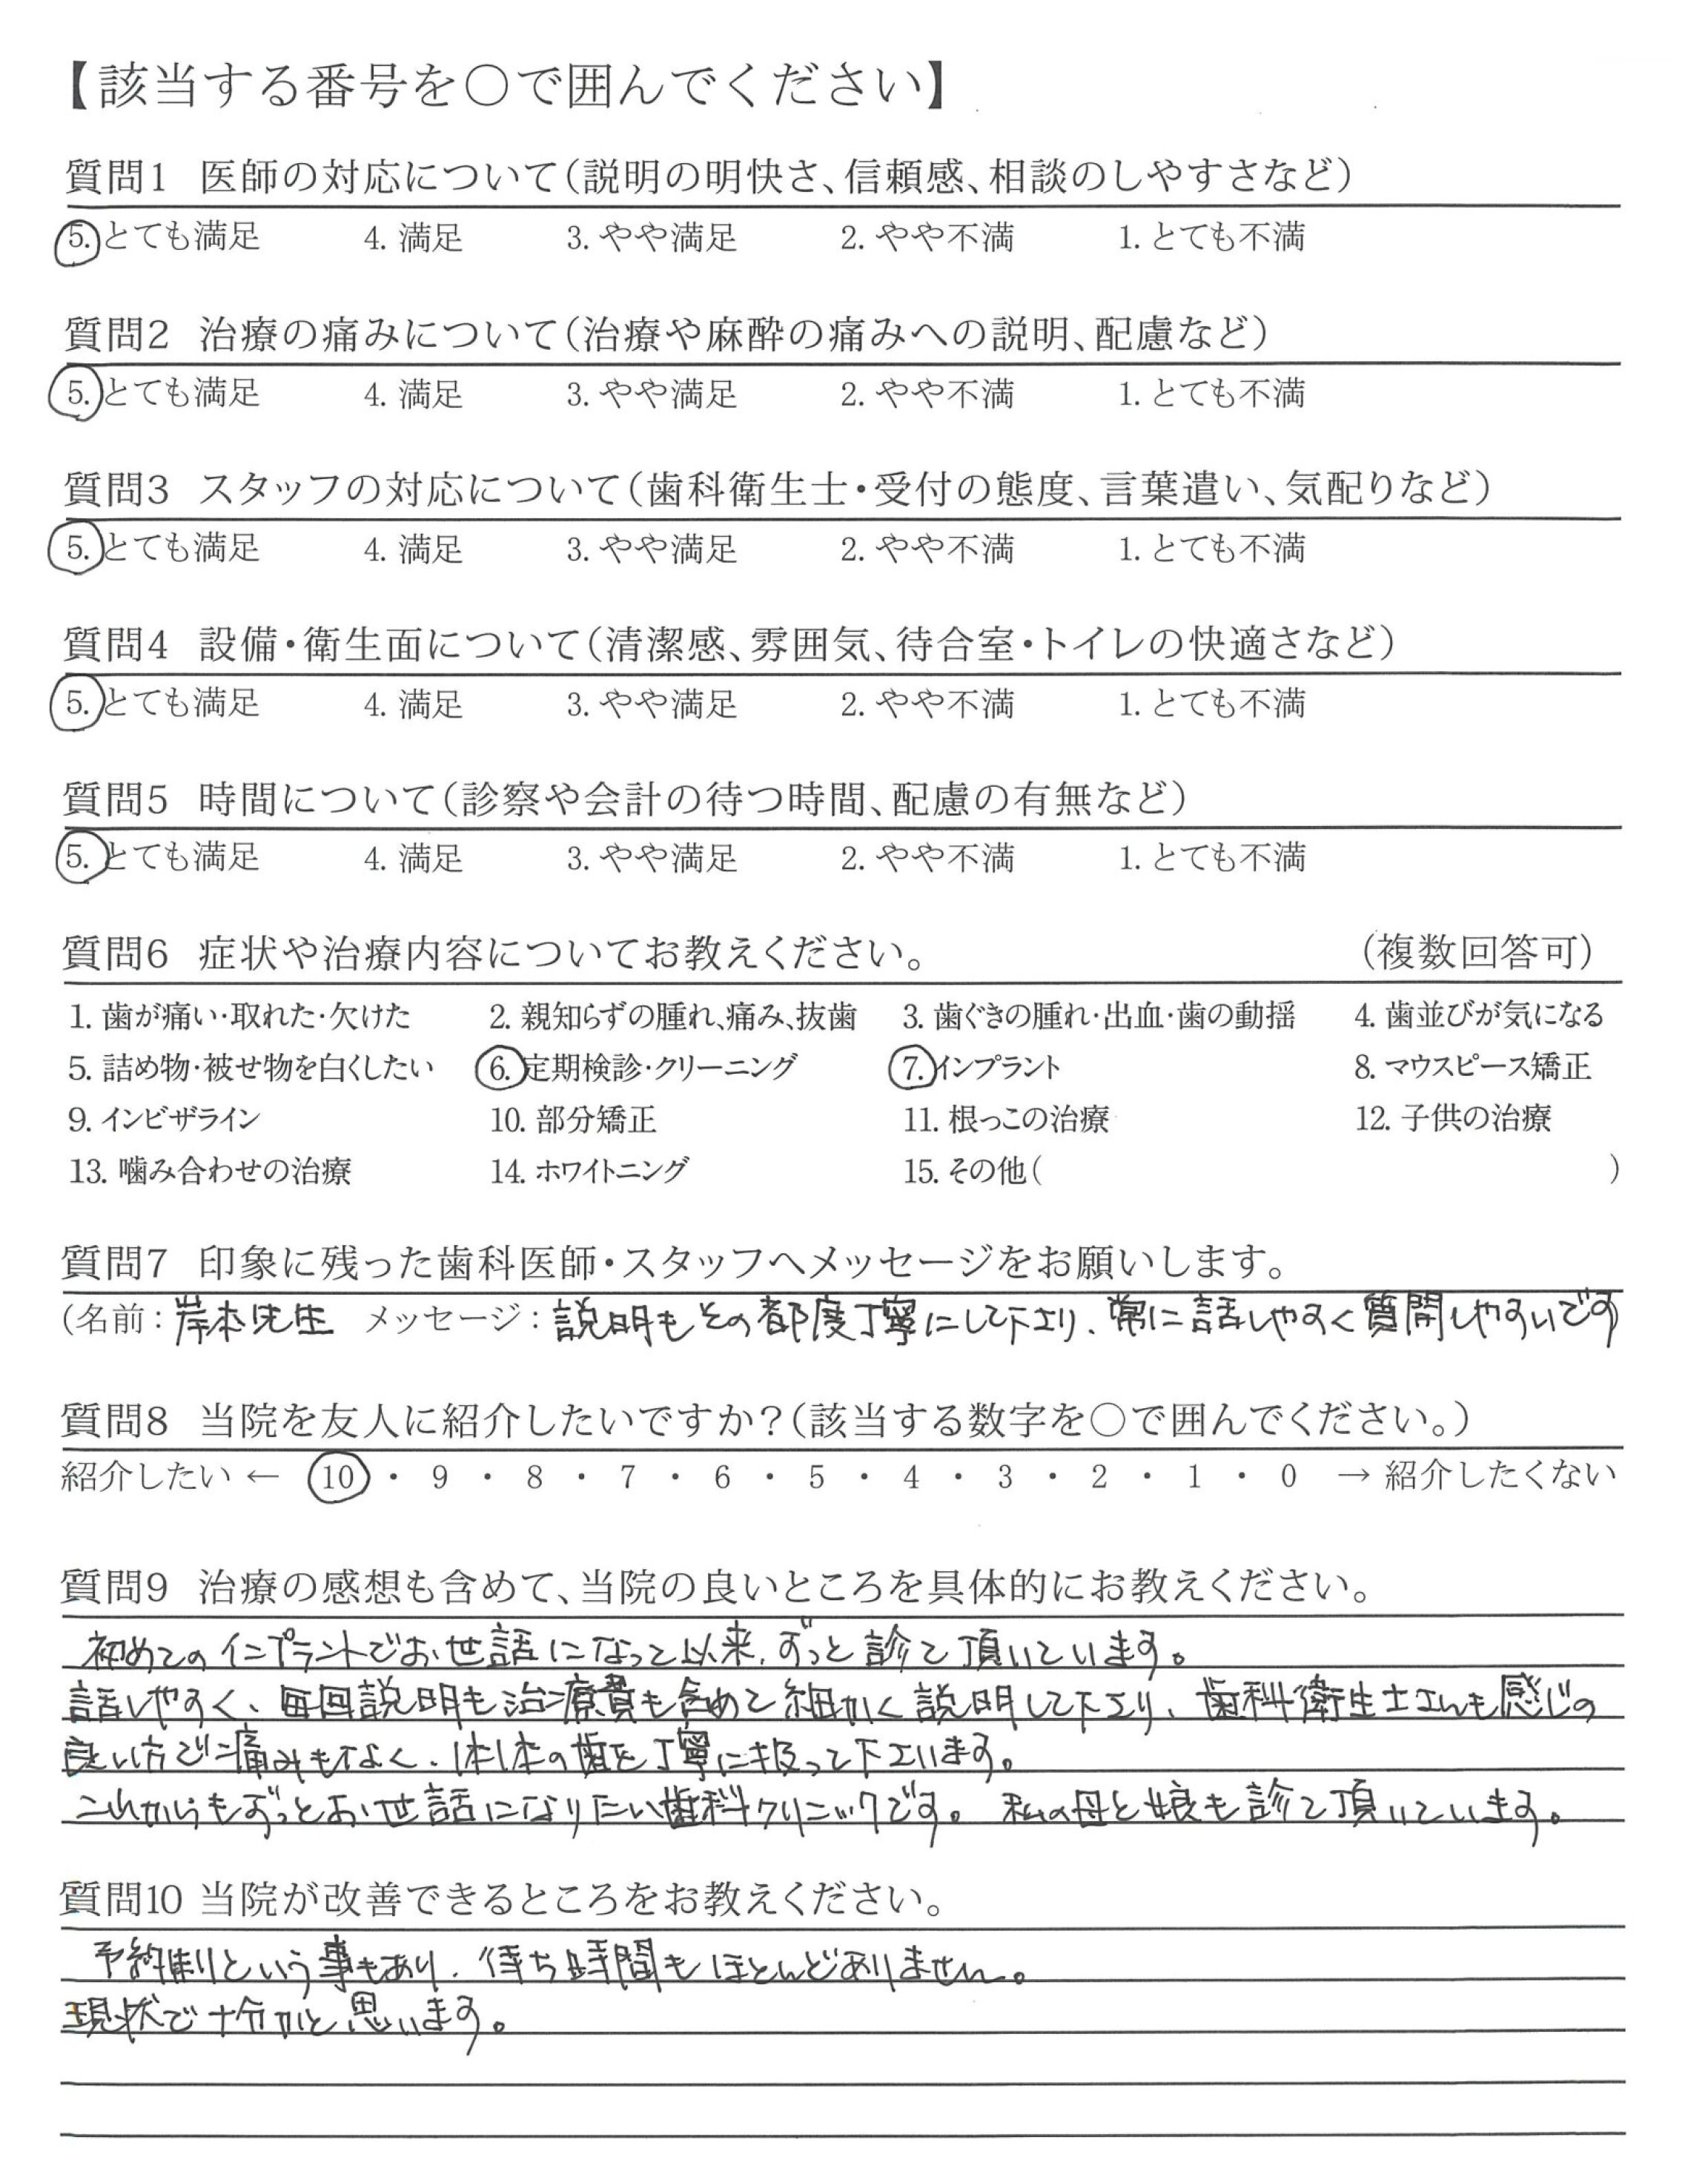 【該当する番号を〇で囲んでください】
質問1 医師の対応について(説明の明快さ、信頼感、相談のしやすさなど)
5. とても満足 4. 満足 3. やや満足 2. やや不満 1. とても不満
質問2 治療の痛みについて(治療や麻酔の痛みへの説明、配慮など)
5. とても満足 4. 満足 3. やや満足 2. やや不満 1. とても不満
質問3 スタッフの対応について(歯科衛生士・受付の態度、言葉遣い、気配りなど)
5. とても満足 4. 満足 3. やや満足 2. やや不満 1. とても不満
質問4 設備・衛生面について(清潔感、雰囲気、待合室・トイレの快適さなど)
5. とても満足 4. 満足 3. やや満足 2. やや不満 1. とても不満
質問5 時間について(診察や会計の待つ時間、配慮の有無など)
5. とても満足 4. 満足 3. やや満足 2. やや不満 1. とても不満
質問6 症状や治療内容についてお教えください。 (複数回答可)
1. 歯が痛い・取れた・欠けた 2. 親知らずの腫れ、痛み、抜歯 3. 歯ぐきの腫れ・出血・歯の動揺 4. 歯並びが気になる
5. 詰め物・被せ物を白くしたい 6. 定期検診・クリーニング 7. インプラント 8. マウスピース矯正
9. インビザライン 10. 部分矯正 11. 根っこの治療 12. 子供の治療
13. 噛み合わせの治療 14. ホワイトニング 15. その他( )
質問7 印象に残った歯科医師・スタッフへメッセージをお願いします。
(名前：岸本先生 メッセージ：説明もその都度丁寧にして下さり、常に話しやすく質問しやすいです
質問8 当院を友人に紹介したいですか？(該当する数字を〇で囲んでください。)
紹介したい ← 10 ・ 9 ・ 8 ・ 7 ・ 6 ・ 5 ・ 4 ・ 3 ・ 2 ・ 1 ・ 0 → 紹介したくない
質問9 治療の感想も含めて、当院の良いところを具体的にお教えください。
初めてのインプラントでお世話になって以来、ずっと診て頂いています。
話しやすく、毎回説明も治療費も含めて細かく説明して下さり、歯科衛生士さんも感じの
良い方で痛みもなく、1本1本の歯を丁寧に扱って下さいます。
これからもずっとお世話になりたい歯科クリニックです。 私の母と娘も診て頂いています。
質問10 当院が改善できるところをお教えください。
予約制という事もあり、待ち時間もほとんどありません。
現状で十分かと思います。